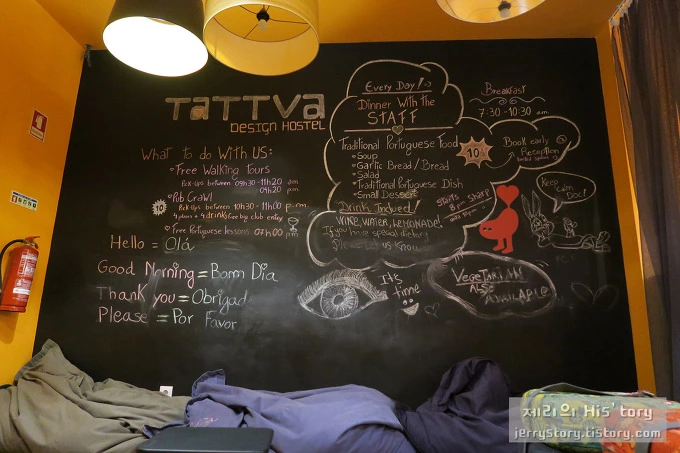 TATTVA
DESIGN HOSTEL
What to do With US:
Free Walking Tours
Pick-Ups between 09h30-11h20 am
04h20 pm
Pub Crawl
Pick Ups between 10h30-11h00 p.m
4 drinks free by club entry
Free Portuguese lessons 07h00 pm
Hello = Olá
Good Morning = Bom Dia
Thank you = Obrigad
Please = Por Favor
Every Day! :)
Dinner With the
STAFF
Traditional Portuguese Food
Soup
Garlic Bread / Bread
Salad
Traditional Portuguese Dish
Small Dessert
Drink Inclued!
WINE, WATER, LEMONADE!
If you have special dietary
please let us know
10
Starts
8 pm sharp
It's
time
Breakfast
7:30 - 10:30 am
Book early @
Reception
Keep
Calm
Doc!
VEGETARIAN
ALSO
AVAILABLE
재리의 His' tory
jerrystory.tistory.com